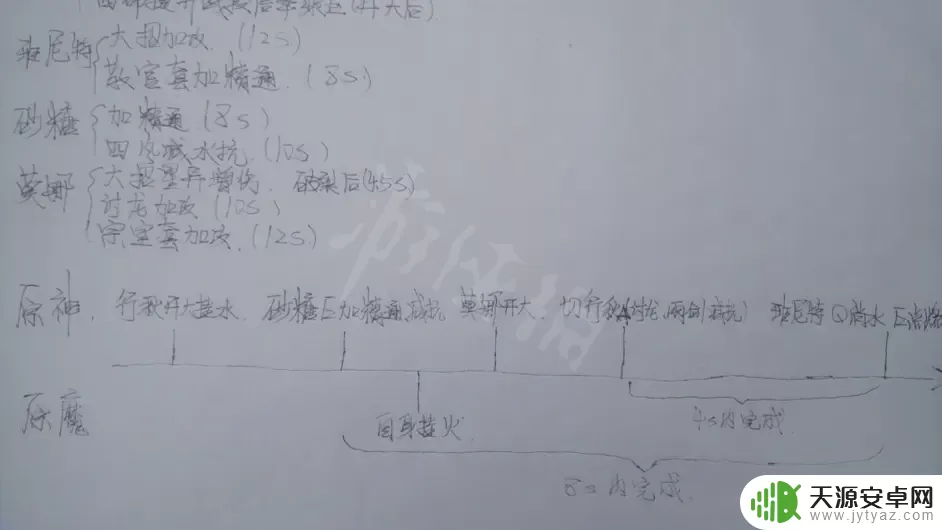 班尼特 大招加攻.(12s)
教官套加精通.(8s)
砂糖 加精通(8s)
四风减水抗.(10s)
莫娜 大招星异增伤. 破裂后(4.5s)
讨龙加攻(10s)
宗室套加攻.(12s)
原神. 行秋开大挂水. 砂糖E加精通,减抗 莫娜开大. 切行秋(讨龙,雨剑 班尼特Q蒸水 E点燃
原魔
自身挂火
4s内完成.
8s内完成.
天源安卓网
www.jytyaz.com